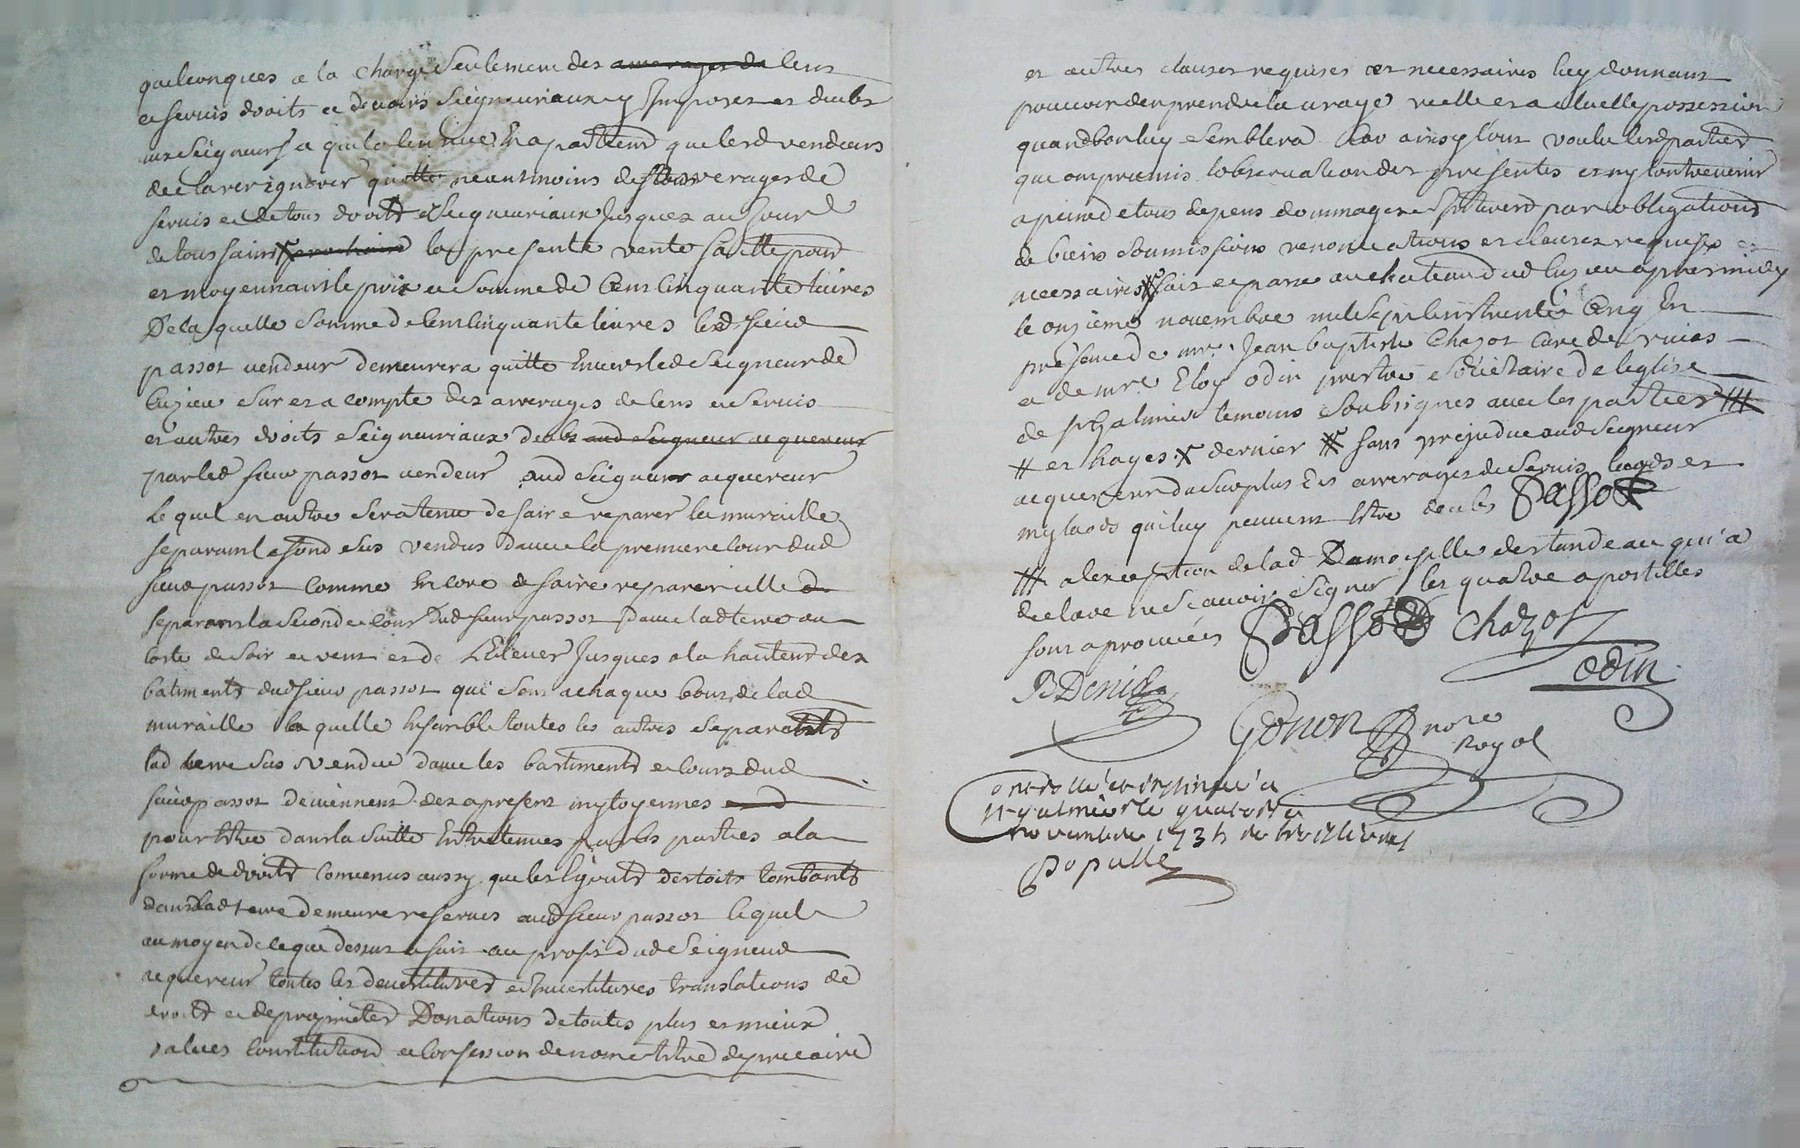 quelconques a la charge seulement des arrerages de leurs
et servis droits et devoirs seigneuriaux y imposez et deubs
aux seigneurs a qui la lenuee en apartient que lesd vendeurs
declarer ignorer quitte neantmoins des arrerages de
servis et de tous droits seigneuriaux jusques au jour
de toussaint prochain la presente vente faitte pour
et moyennant le prix et somme de cent cinquante livres
De laquelle somme de cent cinquante livres led sieur
passot vendeur demeurera quitte envers led seigneur de
Cuzieu sur et a compte des arrerages de cens et servis
et autres droits seigneuriaux deubs aud seigneur acquereur
par led sieur passot vendeur aud seigneur acquereur
Lequel en outre sera tenu de faire reparer la muraille
separant le fond sus vendus davec la premiere cour dud
sieur passot comme encore de faire reparer celle
separant la seconde cour dud sieur passot davec lad terre au
coste de soir et vent et de l'elever jusques a la hauteur des
batiments dud sieur passot qui sont a chaque bout de lad
muraille laquelle ensemble toutes les autres separants
lad terre sus vendue davec les bastiments et cours dud
sieur passot deviennent des apresent mytoyennes
pour estre dans la suitte entretenues par les parties a la
forme de droit convenus aussy que les egouts des toits tombants
dans lad terre demeure reservés aud sieur passot lequel
au moyen de ce que dessus a fait au profit dud seigneur
acquereur toutes les devestitures et investitures translations de
droits et de proprietes Donations de toutes plus et mieux
values constitution et confession de nom et titre de precaire
et autres clauses requises et necessaires luy donnant
pouvoir den prendre la vraye reelle et actuelle possession
quand bon luy semblera Car ainsy l'ont voulu lesd parties
que ont promis l'observation des presentes et ny contrevenir
a peine de tous depens dommages et interets par obligations
de biens soumissions renonciations et clauses requises et
necessaires fait et passé au chateau dud Cuzieu apres midy
le onzieme novembre mil sept cent trente cinq En
presence de mre Jean baptiste Chazot curé de rivas
et de mre Eloy odin prestre societaire de l'eglise
de st Galmier temoins soubsignes avec les parties
et hayes dernier sans prejudice aud seigneur
acquereur du surplus des arrerages de servis laods et
mylaods qui luy peuvent estre deubs Passot
a l'exception de lad Damoiselle destandeau qui a
declaré ne scavoir signer les quatre apostilles
sont aprouvées Passot Chazot
BDenis odin
Gonon nore
Royal
Controllé et insinué a
st galmier le quatorze
novembre 1735 
Populle